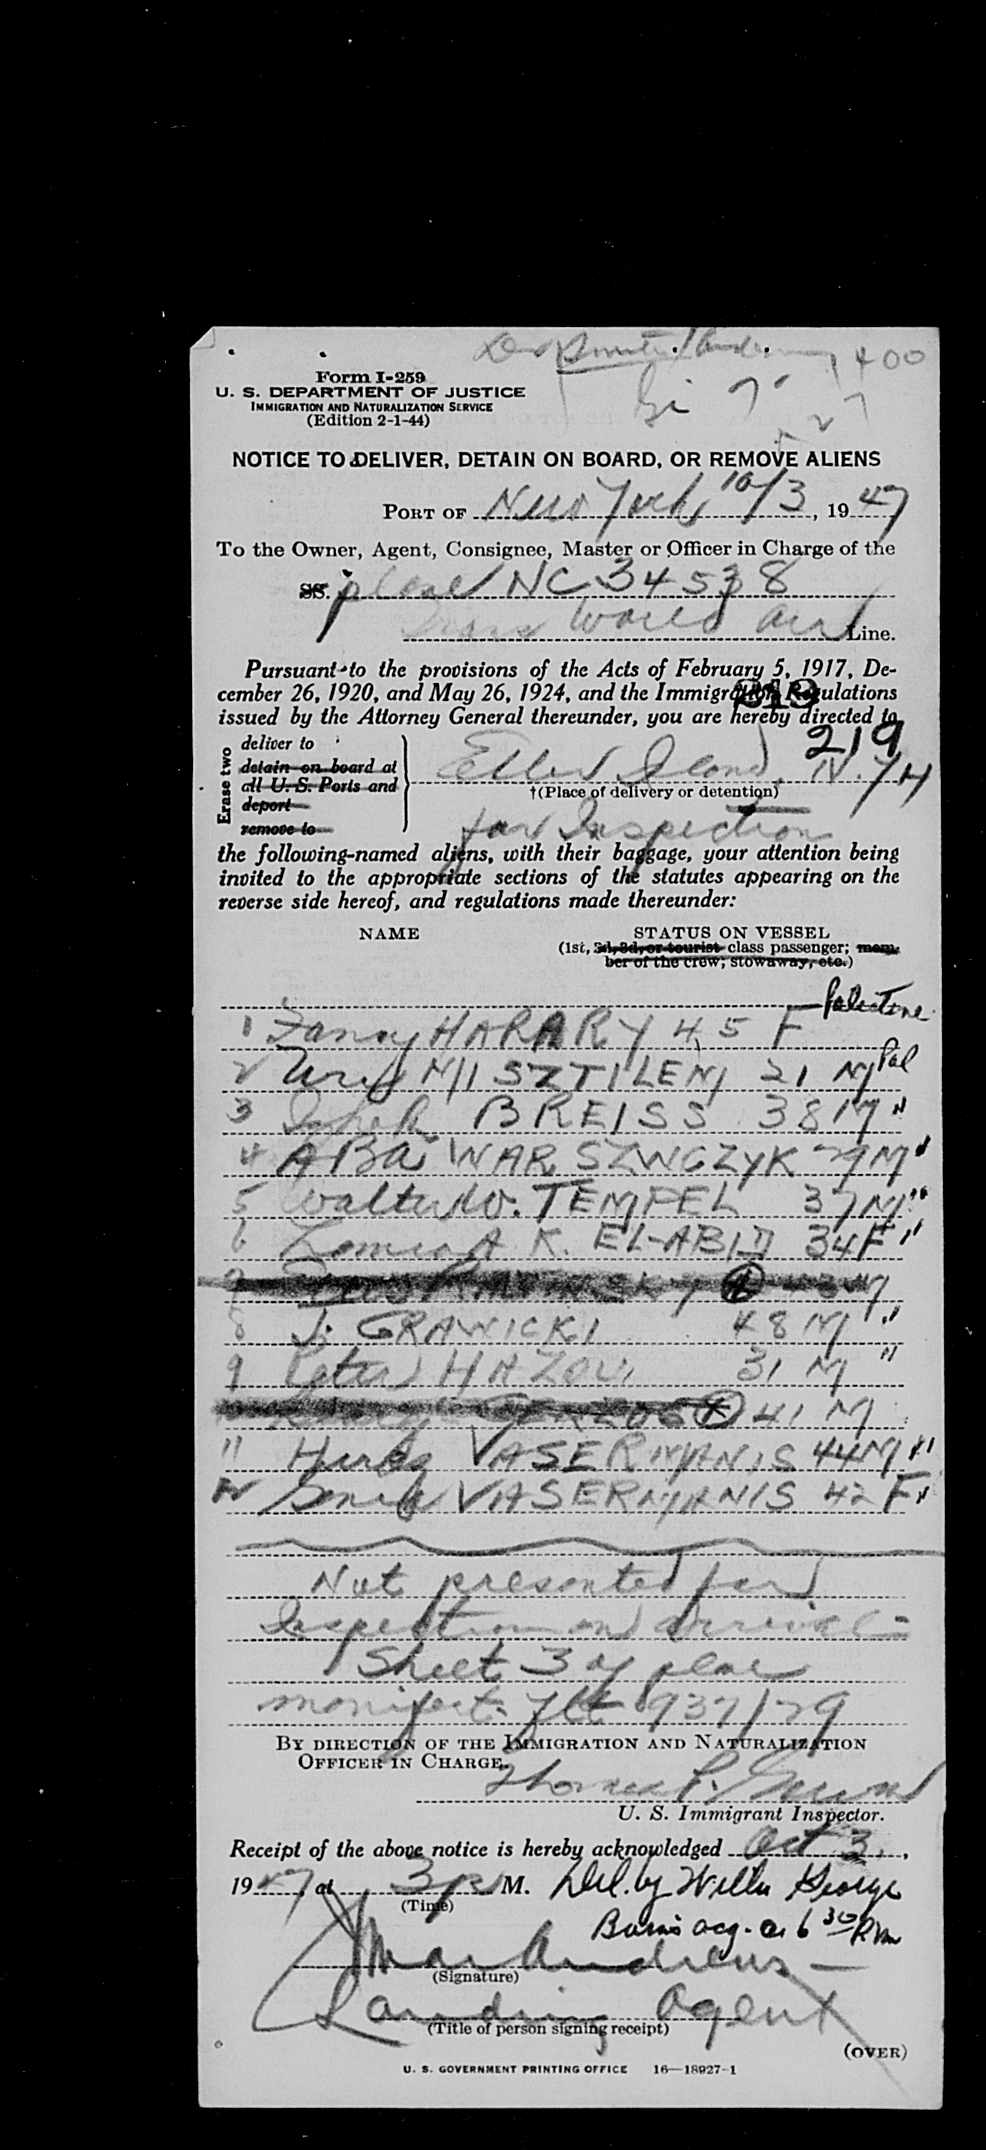 400
Form I-259
U. S. DEPARTMENT OF JUSTICE
IMMIGRATION AND NATURALIZATION SERVICE
(Edition 2-1-44)
NOTICE TO DELIVER, DETAIN ON BOARD, OR REMOVE ALIENS
PORT OF New York 10/3, 1947
To the Owner, Agent, Consignee, Master or Officer in Charge of the
SS. plane NC 34538
Trans World Air Line.
Pursuant to the provisions of the Acts of February 5, 1917, De-
cember 26, 1920, and May 26, 1924, and the Immigration Regulations
issued by the Attorney General thereunder, you are hereby directed to
219
Erase two
deliver to
detain on board at
all U. S. Ports and
deport
remove to
Ellis Island, N.Y.H
†(Place of delivery or detention)
for Inspection
the following-named aliens, with their baggage, your attention being
invited to the appropriate sections of the statutes appearing on the
reverse side hereof, and regulations made thereunder:
NAME
STATUS ON VESSEL
(1st, 2d, 3d, or tourist class passenger; mem-
ber of the crew; stowaway, etc.)
Palestine
1 Fanny HARARY 45 F
2 SZTILEM 21 M Pal
3 BREISS 38 M "
4 ABA WARSZWCZYK 29 M "
5 Walter W. TEMPEL 37 M "
6 K. EL-ABID 34 F "
8 J. GRAWICKI 48 M "
9 Peter HAZOU 31 M "
41 M
11 VASERMANIS 44 M "
12 VASERMANIS 42 F "
Not presented for
Inspection on arrival -
Sheet 3 of plane
manifest. flt 937/29
BY DIRECTION OF THE IMMIGRATION AND NATURALIZATION
OFFICER IN CHARGE.
Thomas P.
U. S. Immigrant Inspector.
Receipt of the above notice is hereby acknowledged Oct 3,
1947, at 3 p M. Del. by Willie George
(Time)
Burns acy. at 6 30 P.m
Andrews
(Signature)
Landing Agent
(Title of person signing receipt)
(OVER)
U. S. GOVERNMENT PRINTING OFFICE 16—18927-1